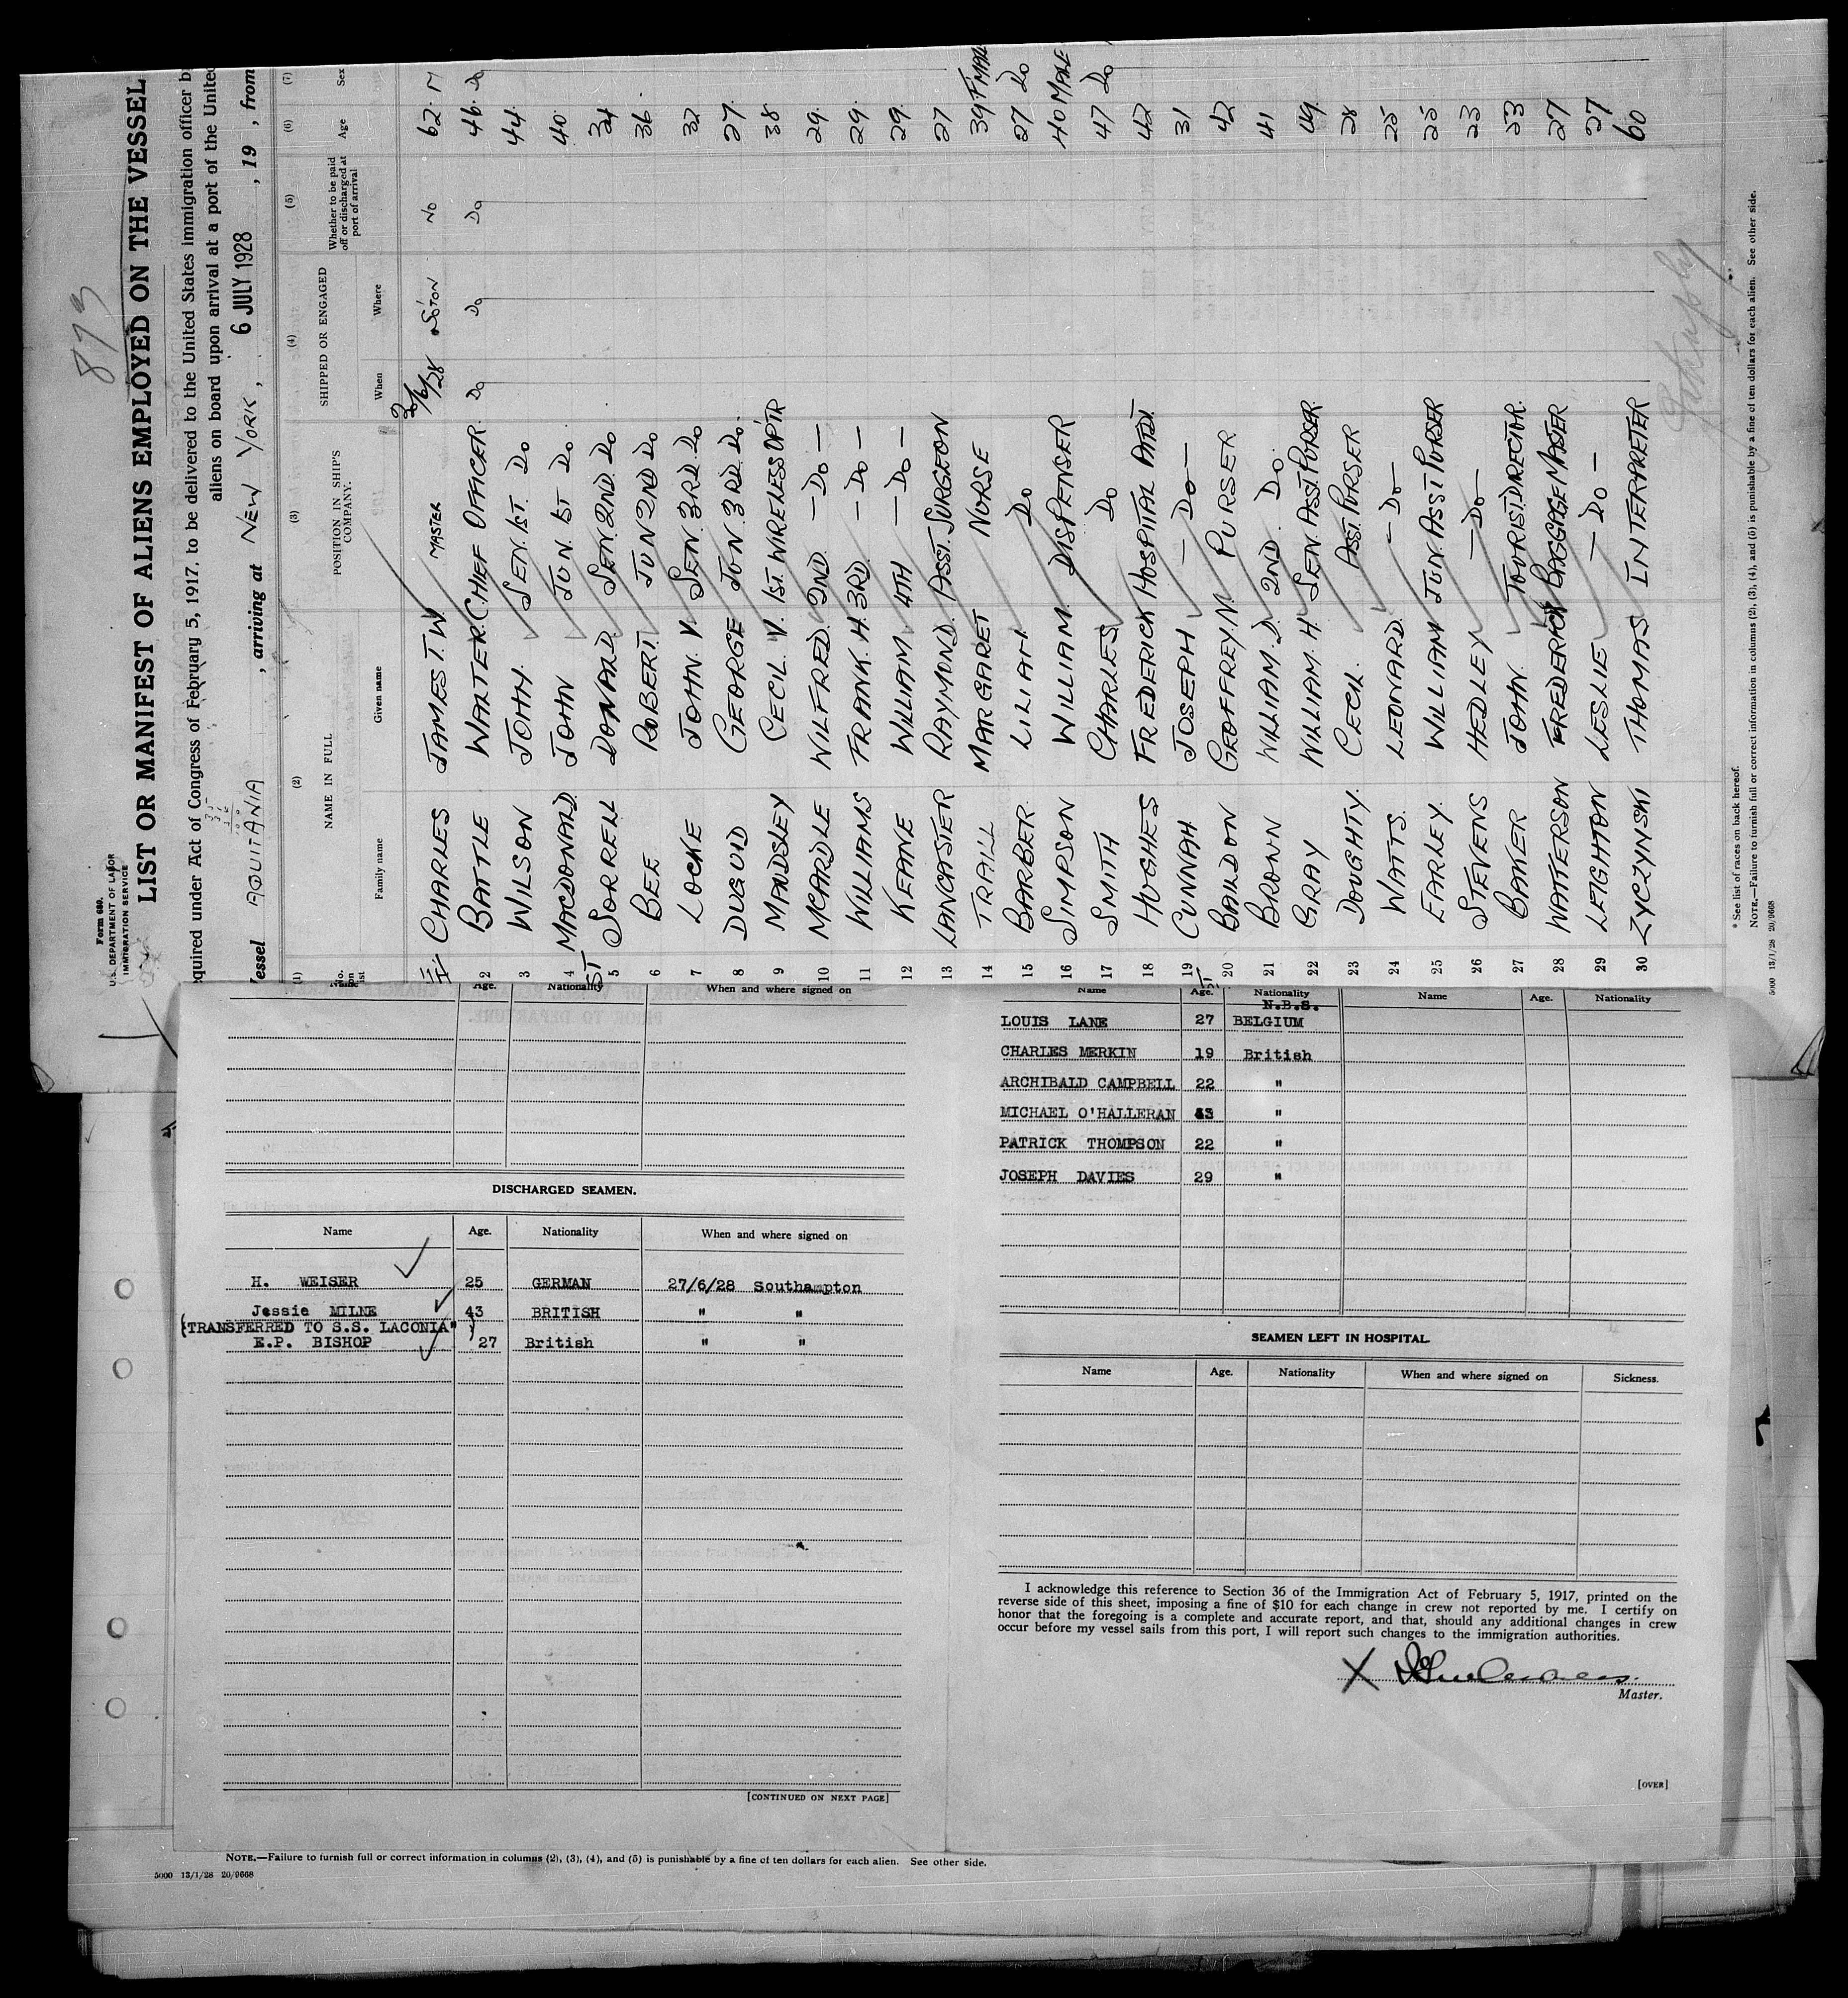 873
Form 689.
U.S. DEPARTMENT OF LABOR
IMMIGRATION SERVICE
LIST OR MANIFEST OF ALIENS EMPLOYED ON THE VESSEL
equired under Act of Congress of February 5, 1917, to be delivered to the United States immigration officer b
aliens on board upon arrival at a port of the United
essel AQUITANIA , arriving at NEW YORK, 6 JULY 1928 , 19 , from
(1) (2) (3) (4) (5) (6) (7)
No. on list NAME IN FULL POSITION IN SHIP'S COMPANY. SHIPPED OR ENGAGED Whether to be paid off or discharged at port of arrival Age Sex
Family name Given name When Where
CHARLES JAMES T.W. MASTER 30/6/28 S'O'TON NO 62 M
2 BATTLE WALTER CHIEF OFFICER DO DO DO 46 DO
3 WILSON JOHN SEN. 1ST. DO 44
4 MACDONALD JOHN JUN. 1ST DO 40
5 SORRELL DONALD SEN. 2ND DO 34
6 BEE ROBERT JUN 2ND DO 36
7 LOCKE JOHN V. SEN 3RD DO 32
8 DUGUID GEORGE JUN 3RD DO 27
9 MAUDSLEY CECIL V. 1ST. WIRELESS OP'TR 38
10 MCARDLE WILFRED 2ND —DO— 29
11 WILLIAMS FRANK. H. 3RD —DO— 29
12 KEANE WILLIAM 4TH —DO— 29
13 LANCASTER RAYMOND ASST. SURGEON 27
14 TRAILL MARGARET NURSE 39 F'MALE
15 BARBER LILIAN DO 27 DO
16 SIMPSON WILLIAM DISPENSER 40 MALE
17 SMITH CHARLES DO 47 DO
18 HUGHES FREDERICK HOSPITAL ATTDT. 42
19 CUNNAH JOSEPH —DO— 31
20 BAILDON GEOFFREY N. PURSER 42
21 BROWN WILLIAM D. 2ND. DO 41
22 GRAY WILLIAM H. SEN. ASST PURSER 49
23 DOUGHTY CECIL ASST PURSER 28
24 WATTS LEONARD —DO— 25
25 EARLEY WILLIAM JUN ASST PURSER 25
26 STEVENS HEDLEY —DO— 23
27 BAKER JOHN TOURIST DIRECTOR 53
28 WATTERSON FREDERICK BAGGAGE MASTER 27
29 LEIGHTON LESLIE —DO— 27
30 ZYCZYNSKI THOMAS INTERPRETER 60
* See list of races on back hereof.
NOTE.—Failure to furnish full or correct information in columns (2), (3), (4), and (5) is punishable by a fine of ten dollars for each alien. See other side.
5000 13/1/28 20/9668
Name Age. Nationality When and where signed on
DISCHARGED SEAMEN.
Name Age. Nationality When and where signed on
H. WEISER 25 GERMAN 27/6/28 Southampton
Jessie MILNE 43 BRITISH " "
(TRANSFERRED TO S.S. LACONIA")
E.P. BISHOP 27 British " "
[CONTINUED ON NEXT PAGE]
Name Age. Nationality Name Age. Nationality
N.B.S.
LOUIS LANE 27 BELGIUM
CHARLES MERKIN 19 British
ARCHIBALD CAMPBELL 22 "
MICHAEL O'HALLERAN "
PATRICK THOMPSON 22 "
JOSEPH DAVIES 29 "
SEAMEN LEFT IN HOSPITAL.
Name Age. Nationality When and where signed on Sickness.
I acknowledge this reference to Section 36 of the Immigration Act of February 5, 1917, printed on the
reverse side of this sheet, imposing a fine of $10 for each change in crew not reported by me. I certify on
honor that the foregoing is a complete and accurate report, and that, should any additional changes in crew
occur before my vessel sails from this port, I will report such changes to the immigration authorities.
X
Master.
[OVER]
NOTE.—Failure to furnish full or correct information in columns (2), (3), (4), and (5) is punishable by a fine of ten dollars for each alien. See other side.
5000 13/1/28 20/9668